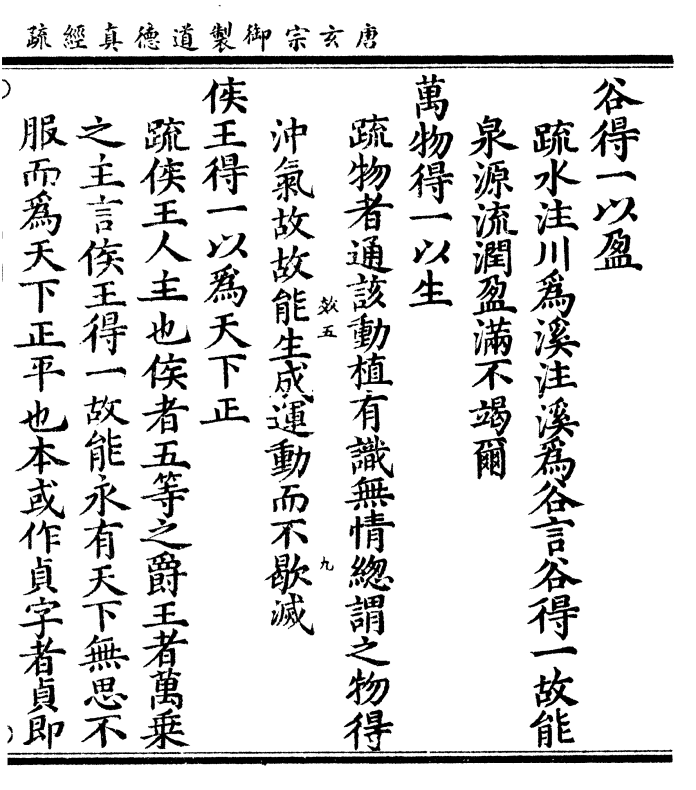 唐玄宗御製道德真經疏
谷得一以盈
疏水注川為溪注溪為谷言谷得一故能
泉源流潤盈滿不竭爾
萬物得一以生
疏物者通該動植有識無情緫謂之物得
效五 九
沖氣故故能生成運動而不歇滅
侯王得一以為天下正
疏侯王人主也侯者五等之爵王者萬乗
之主言侯王得一故能永有天下無思不
服而為天下正平也本或作貞字者貞即